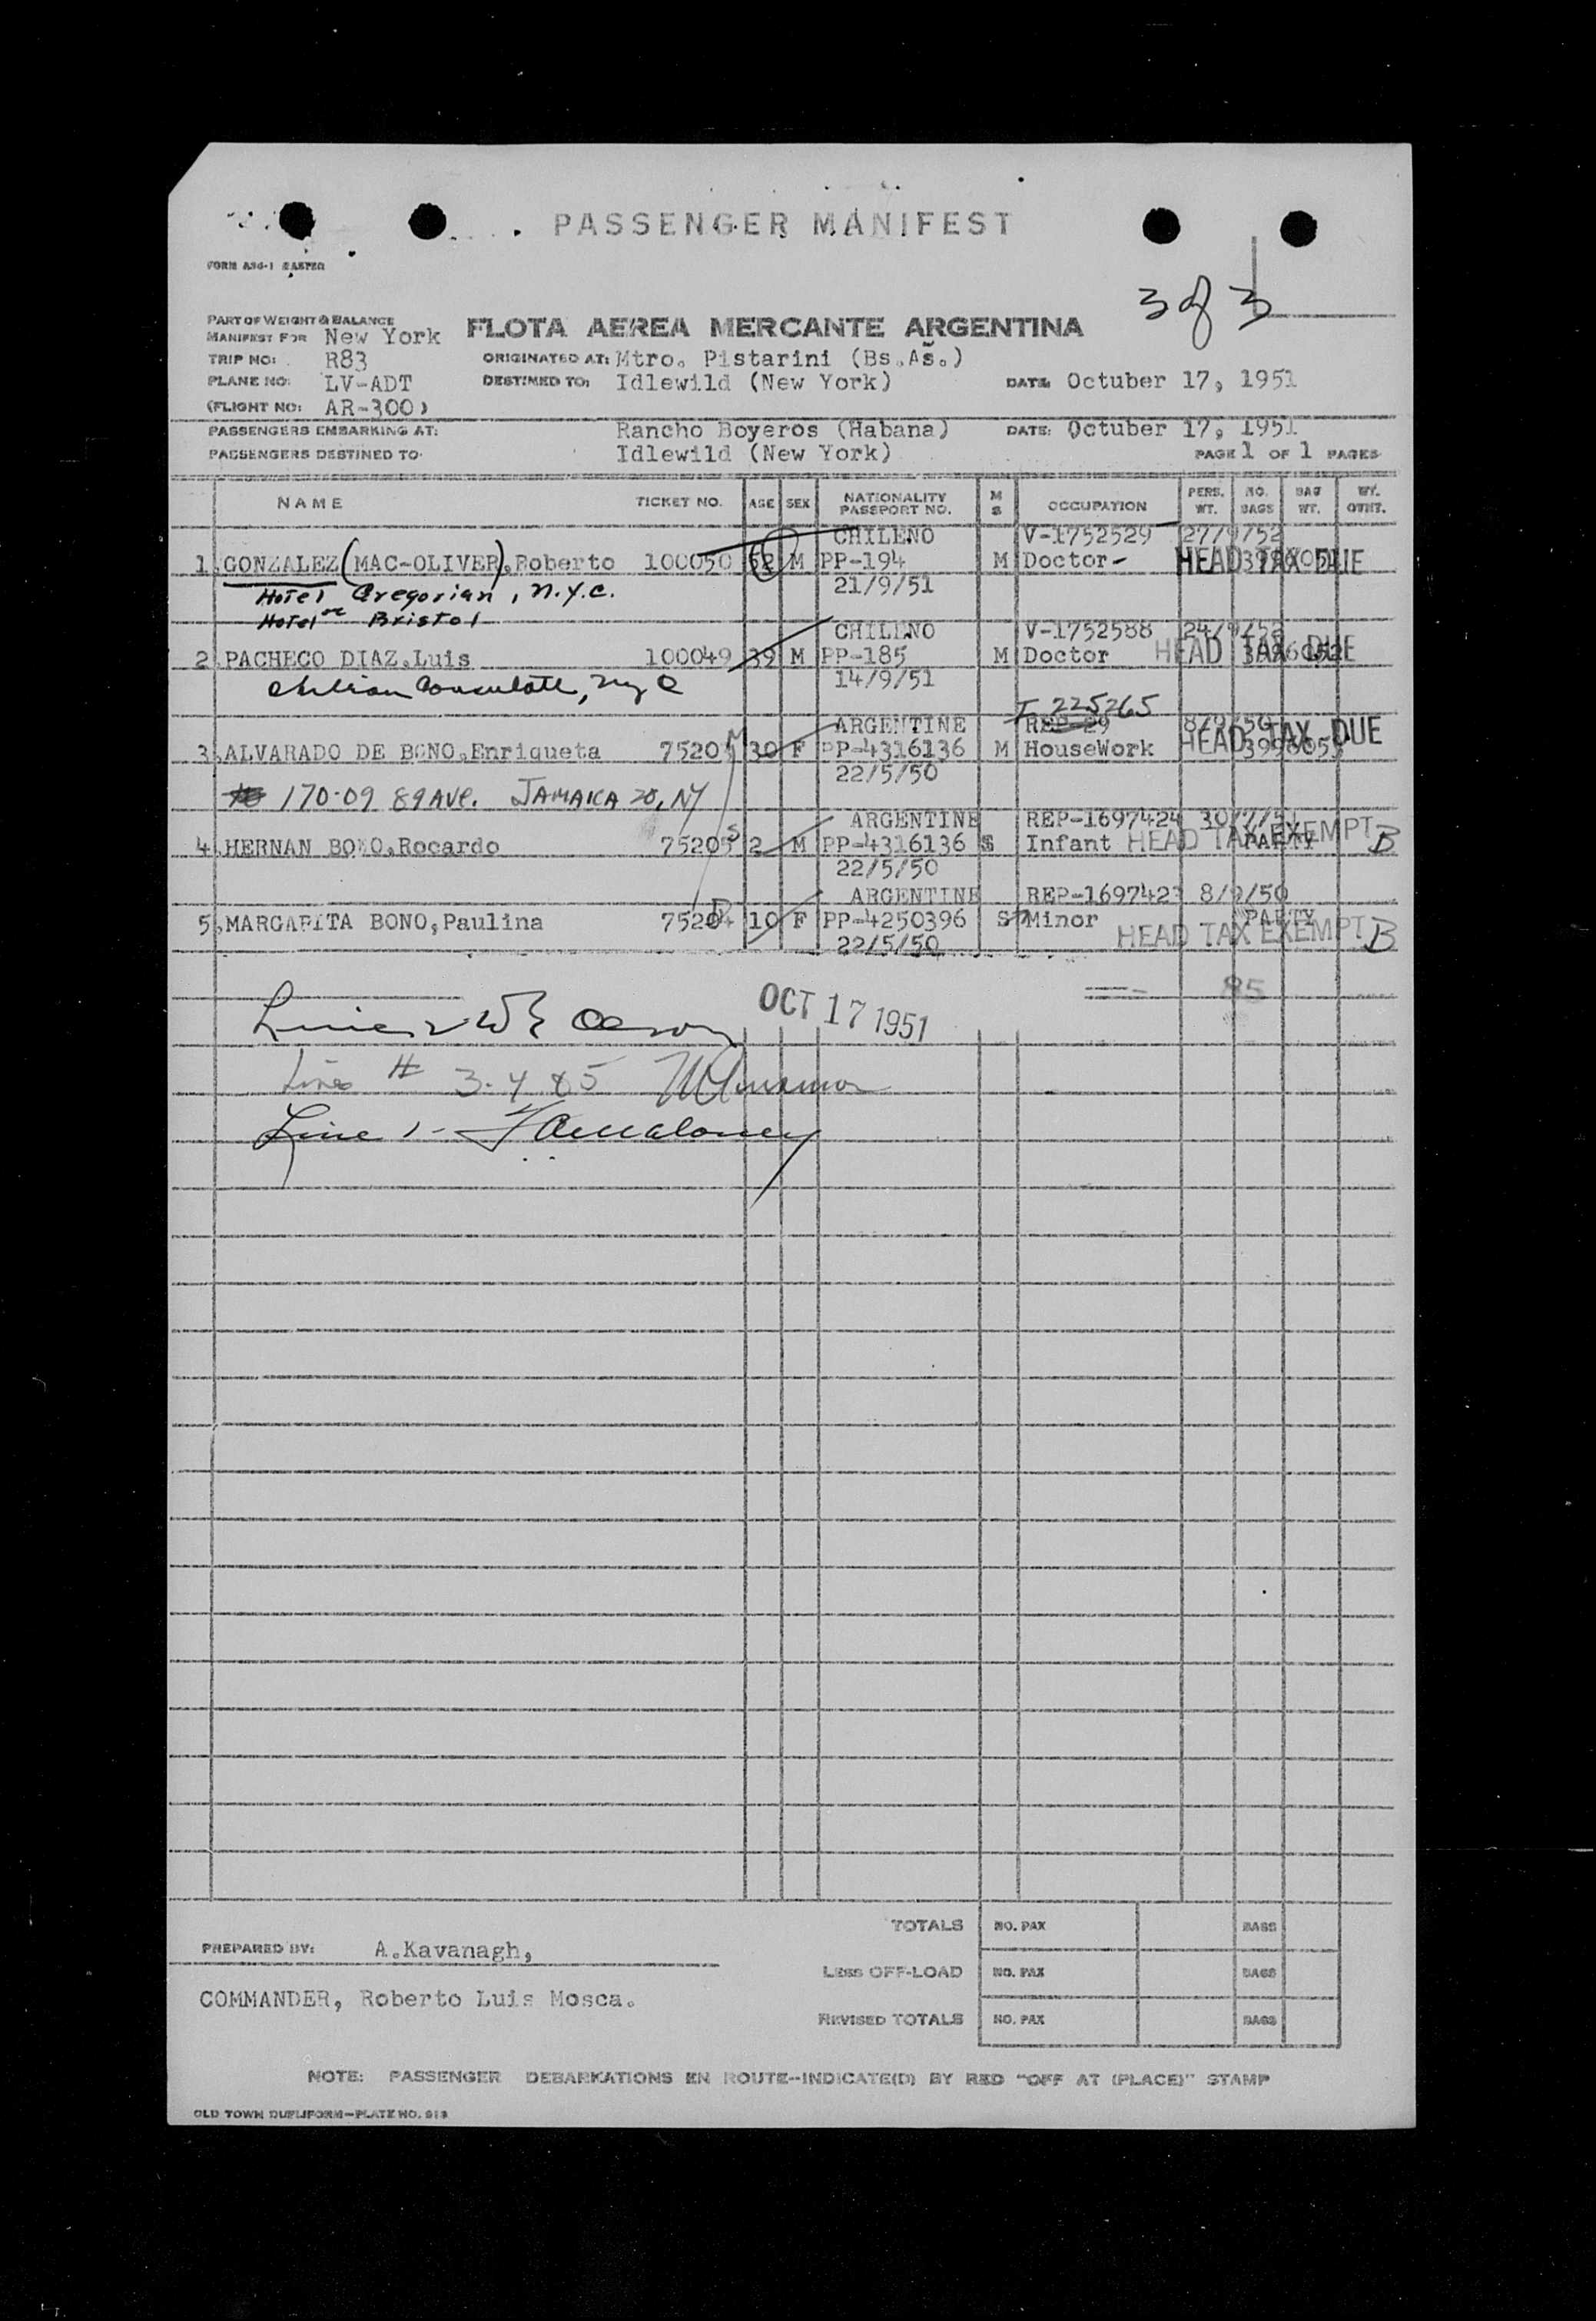 PASSENGER MANIFEST
3 of 3
PART OF WEIGHT & BALANCE
MANIFEST FOR New York
FLOTA AEREA MERCANTE ARGENTINA
TRIP NO: R83 ORIGINATED AT: Mtro. Pistarini (Bs.As.)
PLANE NO: LV-ADT DESTINED TO: Idlewild (New York) DATE Octuber 17, 1951
(FLIGHT NO: AR-300)
PASSENGERS EMBARKING AT: Rancho Boyeros (Habana) DATE: Octuber 17, 1951
PASSENGERS DESTINED TO Idlewild (New York) PAGE 1 OF 1 PAGES
NAME TICKET NO. AGE SEX NATIONALITY PASSPORT NO. M S OCCUPATION PERS. WT. NO. BAGS BAG WT. WT. OTHT.
CHILENO V-1752529 27/9/52
1 GONZALEZ (MAC-OLIVER), Roberto 100050 52 M PP-194 M Doctor- HEAD TAX DUE
Hotel Gregorian, N.Y.C. 21/9/51
or
Hotel Bristol
CHILENO V-1752588 24/9/52
2 PACHECO DIAZ, Luis 100049 39 M PP-185 M Doctor HEAD TAX DUE
Chilean Consulate, NYC 14/9/51
I 225265
ARGENTINE REP-29 8/9/50
3 ALVARADO DE BONO, Enriqueta 75203 30 F PP-4316136 M HouseWork HEAD TAX DUE
22/5/50
170-09 89 AVE. JAMAICA 20, NY
ARGENTINE REP-1697424 30/7/51
4 HERNAN BONO, Rocardo 75205 2 M PP-4316136 S Infant HEAD TAX EXEMPT PARTY B
22/5/50
ARGENTINE REP-1697423 8/9/50
5 MARGARITA BONO, Paulina 75204 10 F PP-4250396 S Minor PARTY
22/5/50 HEAD TAX EXEMPT B
85
OCT 17 1951
Lines # 3-4 & 5
Line 1-
TOTALS NO. PAX BAGS
PREPARED BY: A.Kavanagh,
LESS OFF-LOAD NO. PAX BAGS
COMMANDER, Roberto Luis Mosca.
REVISED TOTALS NO. PAX BAGS
NOTE: PASSENGER DEBARKATIONS EN ROUTE--INDICATE(D) BY RED "OFF AT (PLACE)" STAMP
OLD TOWN DUPLIFORM-PLATE NO.